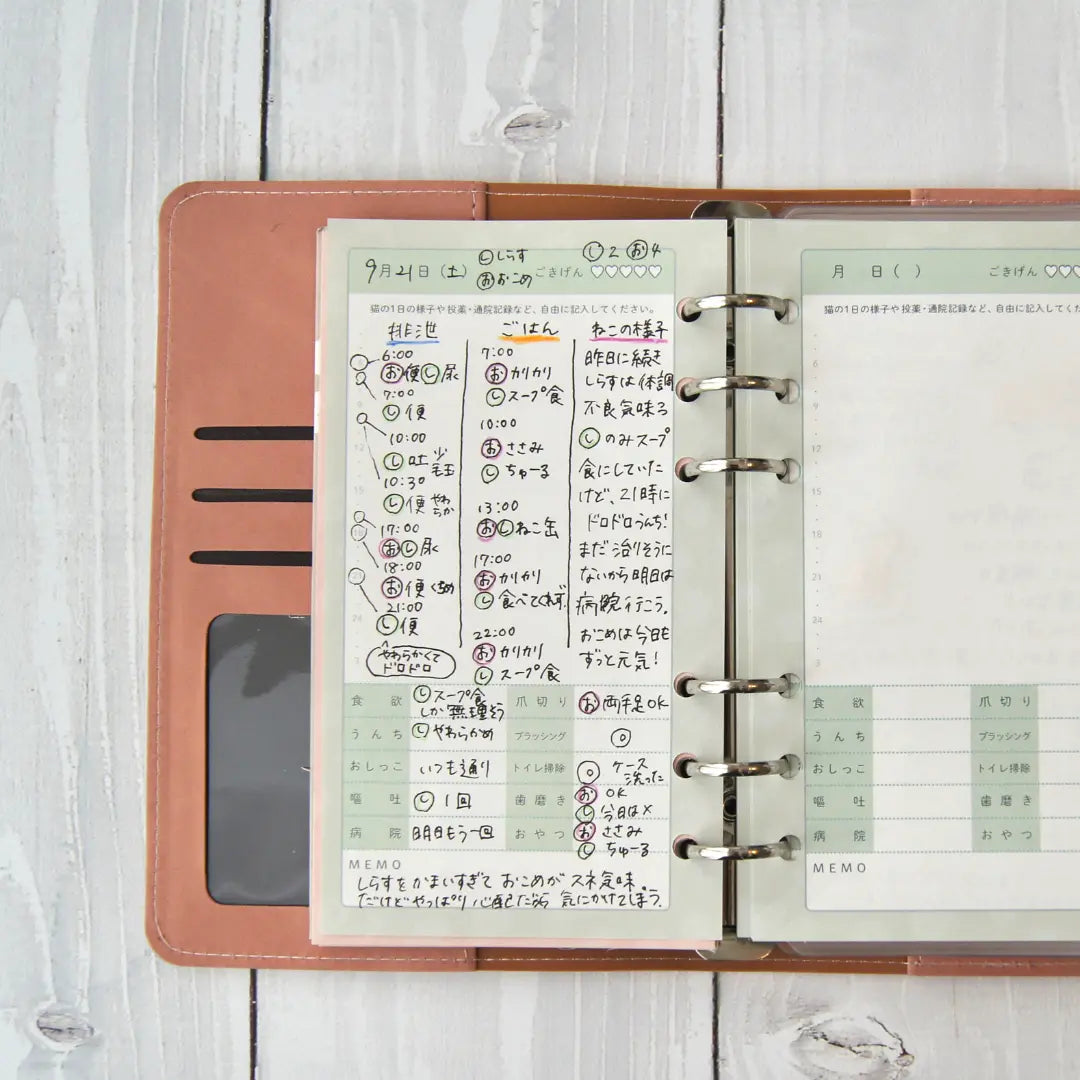 9月21日(土)
し しらす
お おこめ
ごきげん ♡♡♡♡♡
し2 お4
猫の1日の様子や投薬・通院記録など、自由に記入してください。
排泄
6:00
お便し尿
7:00
し便
10:00
し吐 少 毛玉
10:30
し便 やわらか
17:00
おし尿
18:00
お便 くろめ
21:00
し便
やわらかくて
ドロドロ
ごはん
7:00
おカリカリ
しスープ食
10:00
おささみ
しちゅーる
13:00
おしねこ缶
17:00
おカリカリ
し食べてくれず
22:00
おカリカリ
しスープ食
ねこの様子
昨日に続き
しらすは体調
不良気味ろ
しのみスープ
食にしていた
けど、21時に
ドロドロうんち!
まだ治りそうに
ないから明日は
病院行こう。
おこめは今日も
ずっと元気!
6
9
12
15
18
21
24
3
食欲
しスープ食
しか無理そう
爪切り
お両手足OK
うんち
しやわらかめ
ブラッシング
◎
おしっこ
いつも通り
トイレ掃除
◎ ケース
洗った
嘔吐
し1回
歯磨き
おOK
し今日は×
病院
明日もう一回
おやつ
おささみ
しちゅーる
MEMO
しらすをかまいすぎておこめがスネ気味。
だけどやっぱり心配だから気にかけてしまう。
月 日( )
ごきげん ♡♡
猫の1日の様子や投薬・通院記録など、自由に記入してくだ
6
9
12
15
18
21
24
3
食欲
爪切り
うんち
ブラッシング
おしっこ
トイレ掃除
嘔吐
歯磨き
病院
おやつ
MEMO